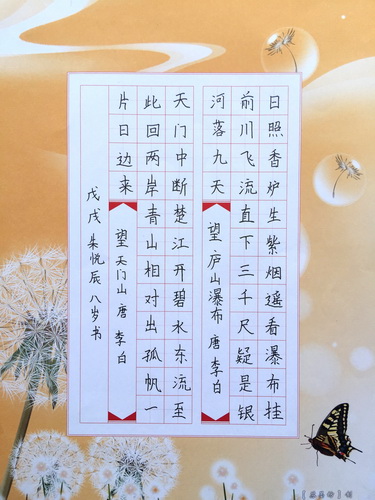 日照香炉生紫烟遥看瀑布挂
前川飞流直下三千尺疑是银
河落九天
望庐山瀑布 唐 李白
天门中断楚江开碧水东流至
此回两岸青山相对出孤帆一
片日边来
望天门山 唐 李白
戊戌 朱悦辰 八岁书